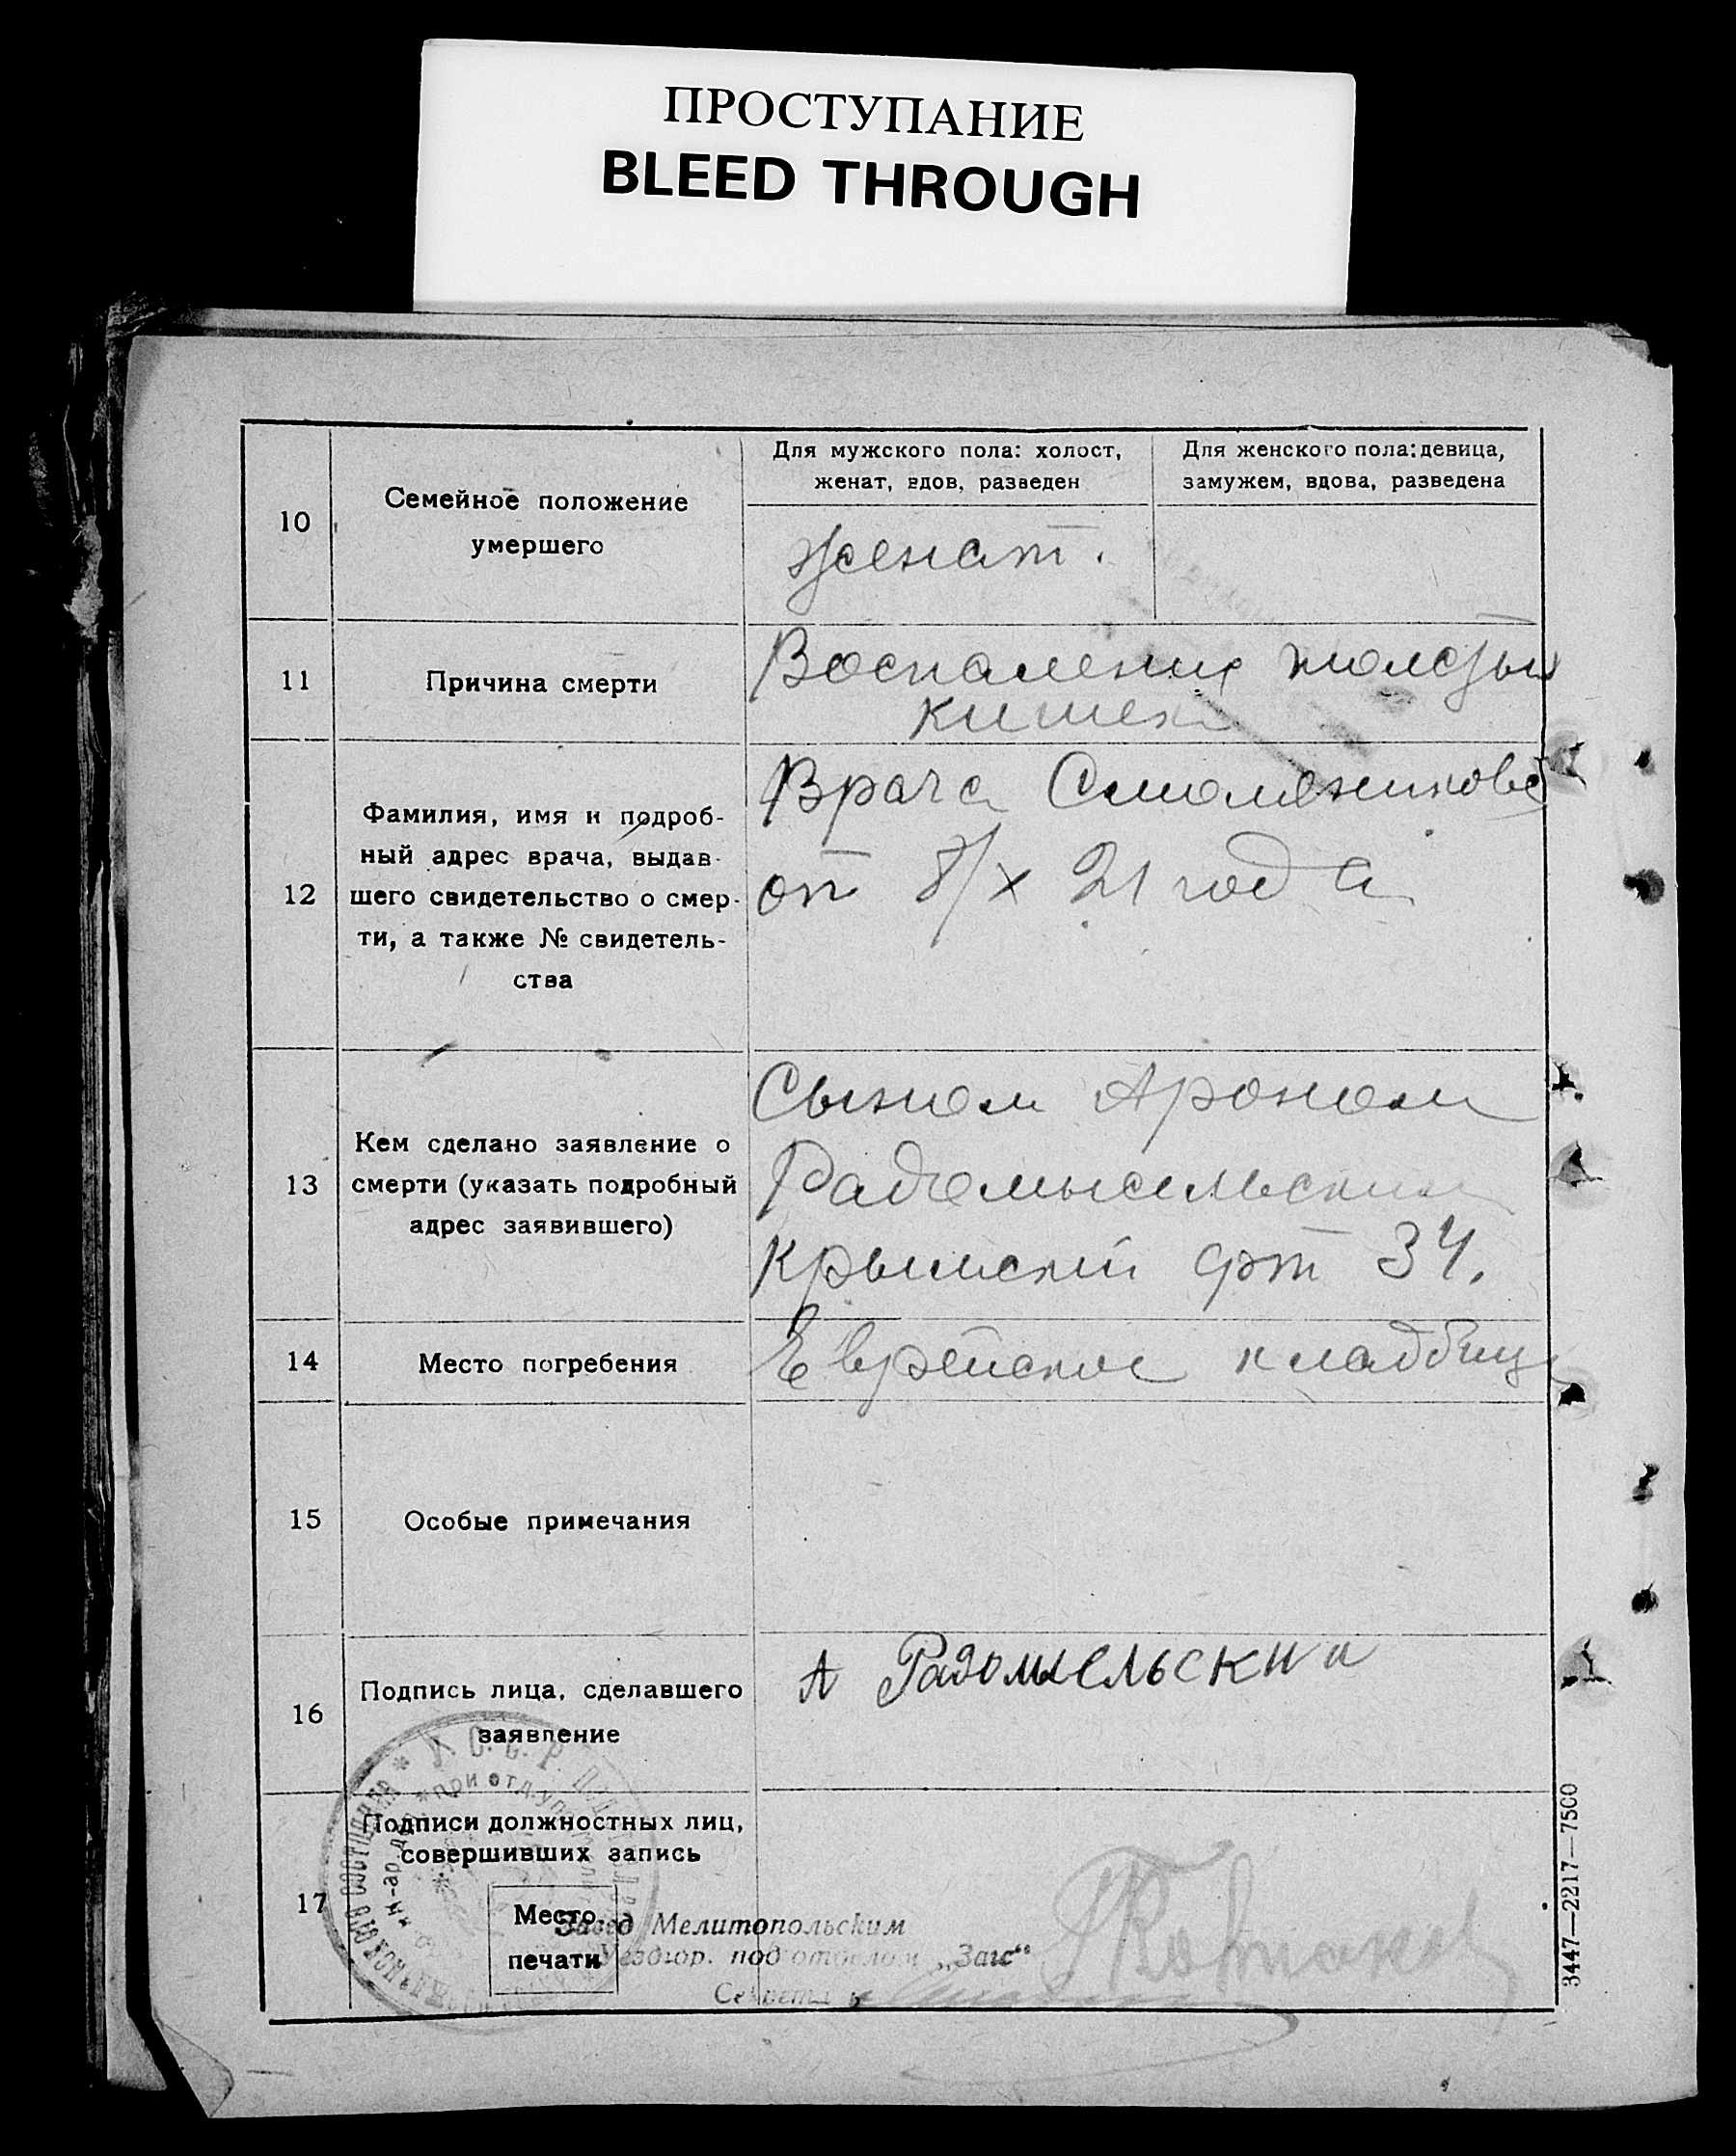 ПРОСТУПАНИЕ
BLEED THROUGH
10
Семейное положение
умершего
Для мужского пола: холост,
женат, вдов, разведен
Для женского пола: девица,
замужем, вдова, разведена
женат.
11
Причина смерти
Воспаления толстых
кишек
12
Фамилия, имя и подроб-
ный адрес врача, выдав-
шего свидетельство о смер-
ти, а также № свидетель-
ства
Врача
от 8/X 21 года
13
Кем сделано заявление о
смерти (указать подробный
адрес заявившего)
Сыном Ароном
Радомысельским
Крымский фт 34.
14
Место погребения
Еврейское кладбище
15
Особые примечания
16
Подпись лица, сделавшего
заявление
А Радомысельский
17
Подписи должностных лиц,
совершивших запись
Место
печати
Завед Мелитопольским
Уездгор. подотделом „Загс“
3447—2217—7500